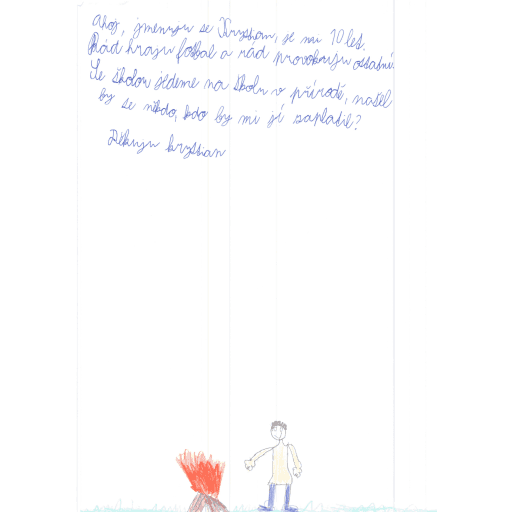 Ahoj, jmenuju se Krystian, je mi 10 let.
Rád hraju fotbal a rád provokuju ostatní.
Se školou jedeme na školu v přírodě, našel
by se někdo, kdo by mi jí zaplatil?
Děkuju krystian